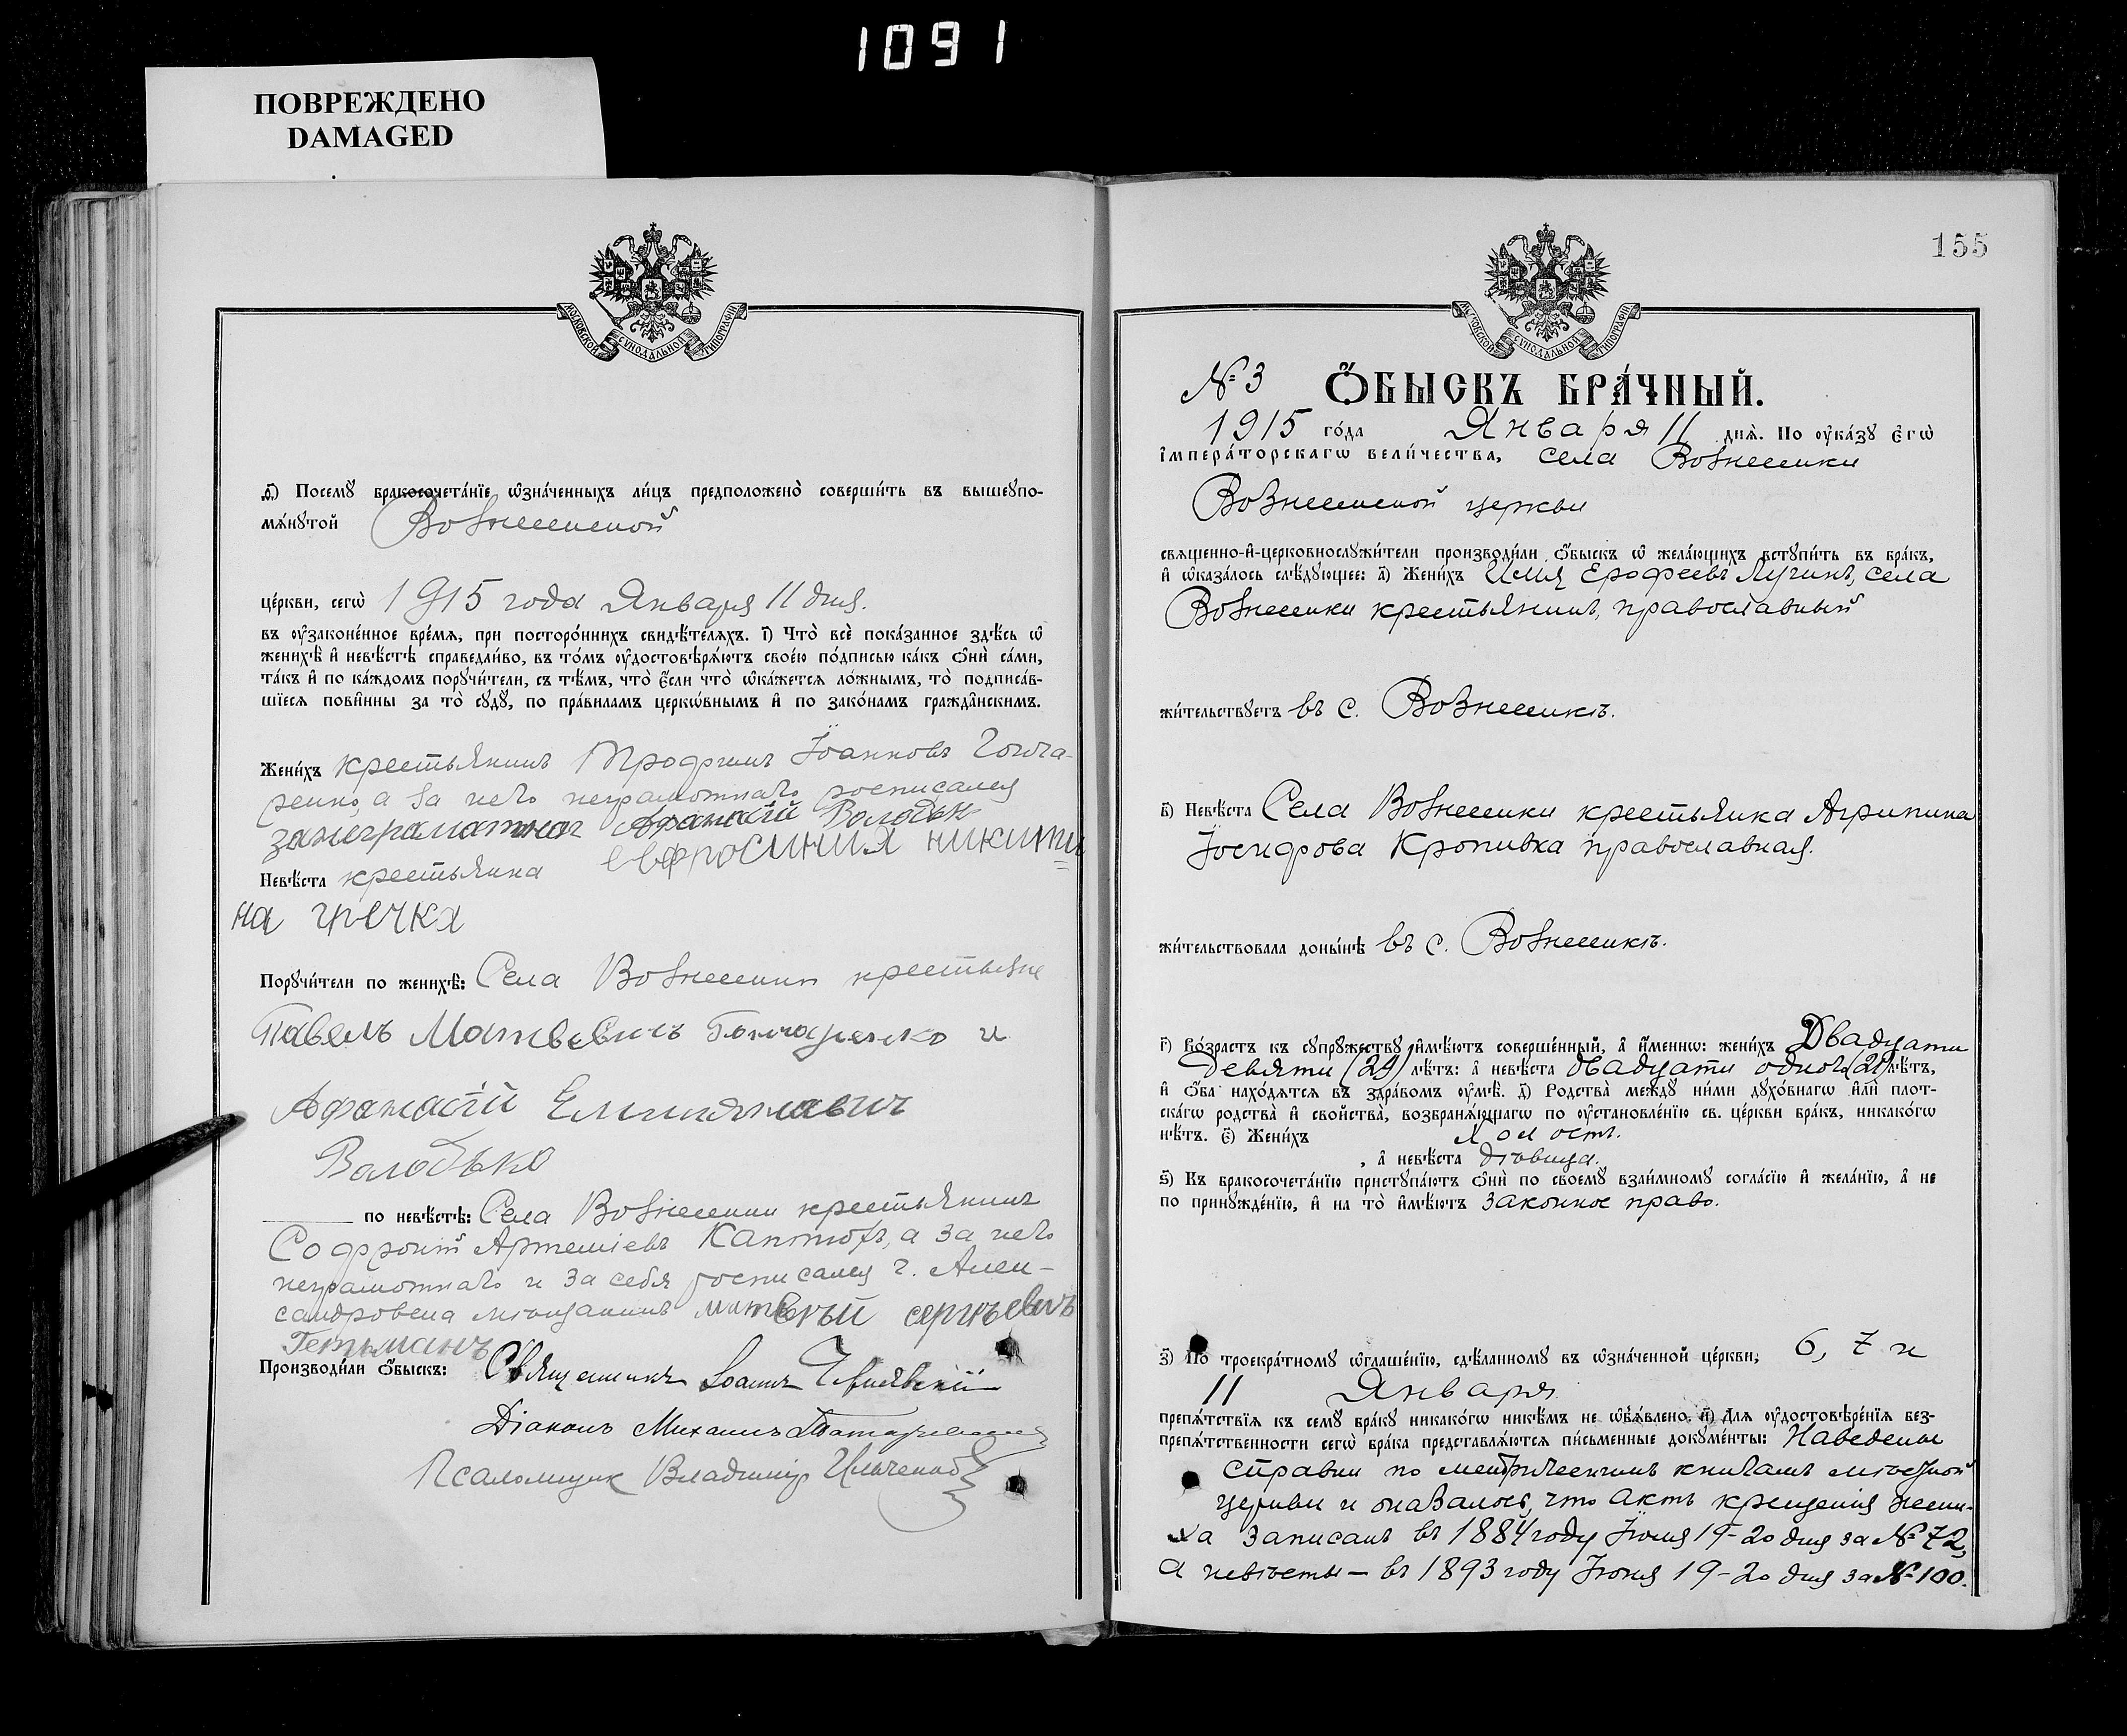 1091
ПОВРЕЖДЕНО
DAMAGED
МОСКОВСКОЙ СѴНОДАЛЬНОЙ ТИПОГРАФІИ
ѳ҃) Посемꙋ бракосочета́нїе ѡ҆зна́ченныхъ ли́цъ предположено̀ соверши́ть въ вышеꙋпо-
мѧ́нꙋтой Вознесенской
це́ркви, сегѡ̀ 1915 года Января 11 дня.
въ ᲂу҆законе́нное вре́мѧ, при посторо́ннихъ свидѣ́телѧхъ. і҃) Что̀ всѐ пока́занное здѣ́сь ѡ҆
женихѣ̀ и҆ невѣ́стѣ справедли́во, въ то́мъ ᲂу҆достовѣрѧ́ютъ свое́ю по́дписью ка́къ ѻ҆нѝ са́ми,
та́къ и҆ по ка́ждомъ порꙋчи́тели, съ тѣ́мъ, что̀ є҆́сли что̀ ѡ҆ка́жетсѧ ло́жнымъ, то̀ подписа́в-
шїесѧ пови́нны за то̀ сꙋдꙋ̀, по пра́виламъ церкѡ́внымъ и҆ по зако́намъ гражда́нскимъ.
Жени́хъ крестьянинъ Трофимъ Іоанновъ Гонча-
ренко, а за него неграмотнаго росписался
занеграмотнаг Афанасій Володьк
Невѣ́ста крестьянка евфросиния никити=
на гречка
Порꙋчи́тели по женихѣ̀: Села Вознесенки крестьяне
Павелъ Матвеевичъ Гончаренко и
Афанасій Емильяновичъ
Володько
по невѣ́стѣ: Села Вознесенки крестьянинъ
Софроній Артеміевъ Каптюхъ, а за него
неграмотнаго и за себя росписался г. Алек-
сандровска мѣщанинъ матвѣй сергѣевичъ
Гетьманъ
Производи́ли ѻ҆́быскъ: Священникъ Іоаннъ
Діаконъ Михаилъ
Псаломщик Владимір Ильченко
155
МОСКОВСКОЙ СѴНОДАЛЬНОЙ ТИПОГРАФІИ
№ 3 Ѻ҆́БЫСКЪ БРА́ЧНЫЙ.
1915 го́да Января 11 днѧ̀. По ᲂу҆ка́зꙋ є҆гѡ̀
і҆мпера́торскагѡ вели́чества, села Вознесенки
Вознесенской церкви
свѧщенно-и҆-церковнослꙋжи́тели производи́ли ѻ҆́быскъ ѡ҆ жела́ющихъ встꙋпи́ть въ бра́къ,
и҆ ѡ҆каза́лось слѣ́дꙋющее: а҃) Жени́хъ Илія Ерофеевъ Лучинъ, села
Вознесенки крестьянинъ, православный
жи́тельствꙋетъ въ с. Вознесенкѣ.
в҃) Невѣ́ста Села Вознесенки крестьянка Агрипина
Іосифова Кропивка православная.
жи́тельствовала доны́нѣ въ с. Вознесенкѣ.
г҃) Во́зрастъ къ сꙋпрꙋ́жествꙋ и҆мѣ́ютъ соверше́нный, а҆ и҆́меннѡ: жени́хъ Двадцати
девяти (29) лѣ́тъ: а҆ невѣ́ста двадцати одного (21) лѣ́тъ,
и҆ ѻ҆́ба нахо́дѧтсѧ въ здра́вомъ ᲂу҆мѣ̀. д҃) Родства̀ междꙋ̀ ни́ми дꙋхо́внагѡ и҆лѝ плот-
ска́гѡ родства̀ и҆ сво́йства̀, возбранѧ́ющагѡ по ᲂу҆становле́нїю св. це́ркви бра́къ, никако́гѡ
нѣ́тъ. є҃) Жени́хъ холостъ.
, а҆ невѣ́ста дѣвица.
ѕ҃) Къ бракосочета́нїю пристꙋпа́ютъ ѻ҆нѝ по своемꙋ̀ взаи́мномꙋ согла́сїю и҆ жела́нїю, а҆ не
по принꙋжде́нїю, и҆ на то̀ и҆мѣ́ютъ законное право.
з҃) По троекра́тномꙋ ѡ҆глаше́нїю, сдѣ́ланномꙋ въ ѡ҆зна́ченной це́ркви, 6, 7 и
11 Января
препѧ́тствїѧ къ семꙋ̀ бра́кꙋ никако́гѡ никѣ́мъ не ѡ҆бъѧ́влено. и҃) Длѧ ᲂу҆достовѣре́нїѧ без-
препѧ́тственности сегѡ̀ бра́ка представлѧ́ютсѧ пи́сьменные докꙋме́нты: Наведены
справки по метрическимъ книгамъ мѣстной
церкви и оказалось, что актъ крещенія жени-
ха записанъ въ 1884 году Іюля 19-20 дня за № 72,
а невѣсты — въ 1893 году Іюня 19-20 дня за № 100.